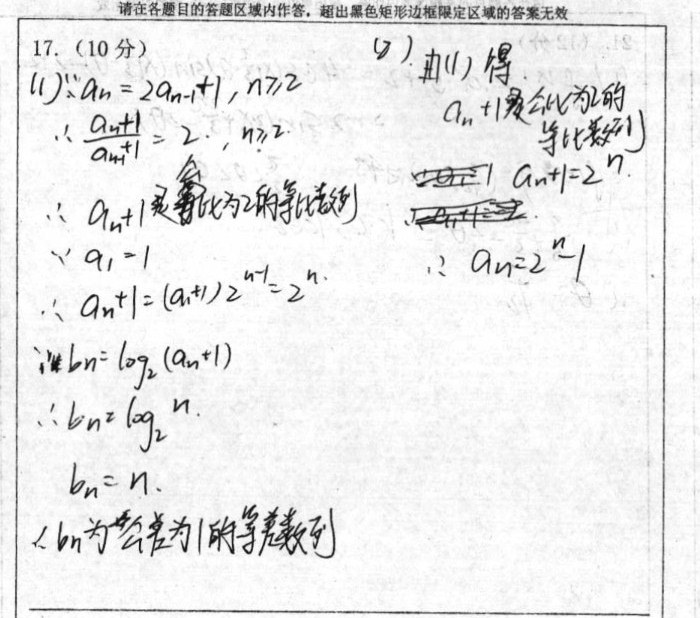 请在各题目的答题区域内作答，超出黑色矩形边框限定区域的答案无效
17. （10分）
(1)∵aₙ = 2aₙ₋₁+1, n≥2
∴ (aₙ+1)/(aₙ₋₁+1) = 2, n≥2
∴ aₙ+1是公比为2的等比数列
∵ a₁=1
∴ aₙ+1=(a₁+1)2ⁿ⁻¹=2ⁿ.
∵ bₙ=log₂(aₙ+1)
∴ bₙ=log₂ⁿ.
bₙ=n.
∴bₙ为公差为1的等差数列
(2). 由(1)得
aₙ+1是公比为2的
等比数列
aₙ+1=2ⁿ.
∴ aₙ=2ⁿ-1